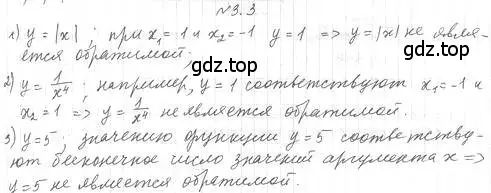 №3.3
1) y = |x| ; при x₁ = 1 и x₂ = -1 y = 1 => y = |x| не явля-
ется обратимой;
gdz.top gdz.top
2) y = 1/x⁴ ; например, y = 1 соответствуют x₁ = -1 и
x₂ = 1 => y = 1/x⁴ не является обратимой.
3) y = 5 ; значению функции y = 5 соответству-
ют бесконечное число значений аргумента x =>
y = 5 не является обратимой.
gdz.top gdz.top